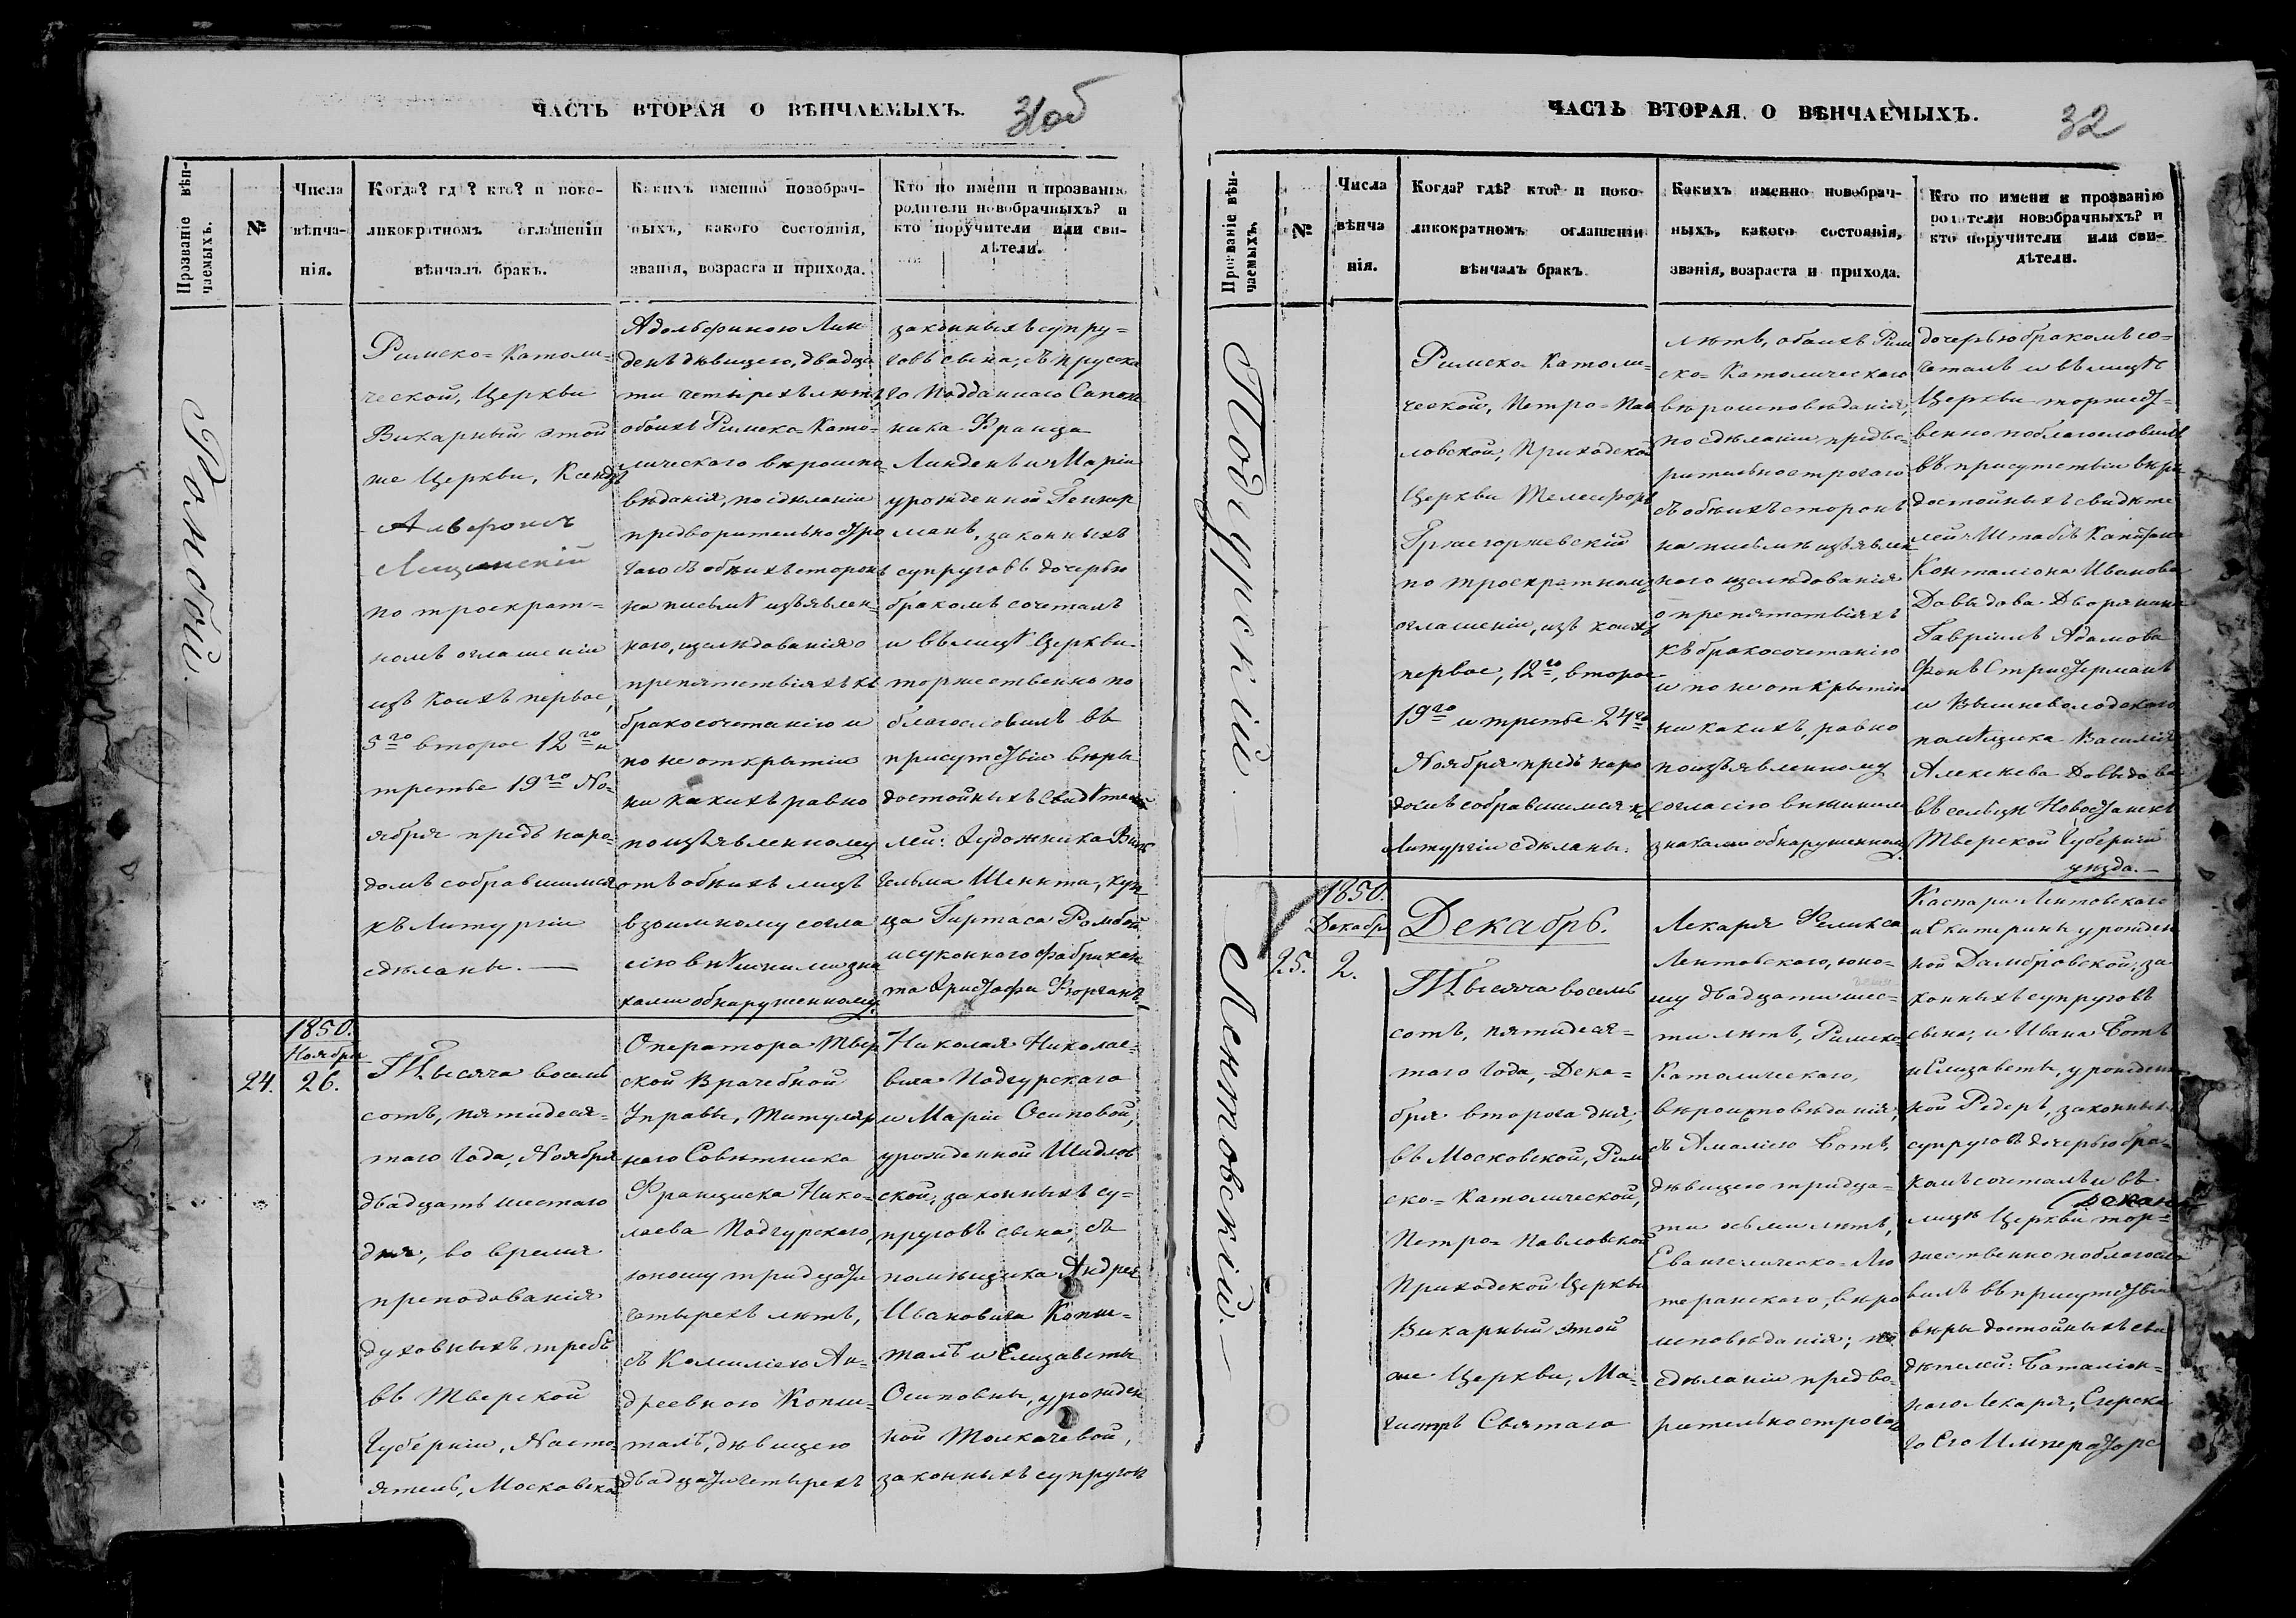 ЧАСТЬ ВТОРАЯ О ВѢНЧАЕМЫХЪ.
31об
Прозваніе вѣн-
чаемыхъ.
№
Числа
вѣнча-
нія.
Когда? гдѣ? кто? и поко-
ликократномъ оглашеніи
вѣнчалъ бракъ.
Какихъ именно новобрач-
ныхъ, какого состоянія,
званія, возраста и прихода.
Кто по имени и прозванію
родители новобрачныхъ? и
кто поручители или сви-
дѣтели.
Римско-Католи-
ческой, Церкви
Викарный этой
же Церкви, Ксендзъ
Альфонсъ
по троекрат-
номъ оглашеніи
изъ коихъ первое,
5го второе 12го и
третье 19го Но-
ября предъ наро-
домъ собравшимся
къ Литургіи
сдѣланы.
Адольфиною Лин-
денъ дѣвицею, двадца
ти четырехъ лѣтъ,
обоихъ Римско-Като-
лического вѣроиспо-
вѣданія, по сдѣланіи
предворительно стро
гаго съ обѣихъ сторонъ
на письмѣ изъявлен-
ного, изслѣдованія о
препятствіяхъ къ
бракосочетанію и
по не открытіи
ни какихъ равно
по изъявленному
отъ обѣихъ лицъ
взоимному согла
сію внѣшними зна
ками обнаруженному.
законныхъ супру-
говъ сына; съ прусска
го Подданнаго Сапож
ника Франца
Линденъ и Маріи
урожденной
манъ, законныхъ
супруговъ дочерью
бракомъ сочеталъ
и въ лицѣ Церкви
торжественно по
благословилъ въ
присутствіи вѣры
достойныхъ свидѣте
лей: Художника Виль
гельма Шенита, куп
ца Гиртаса
и суконного фабрикан
та Христофа
1850.
Ноября
24. 26.
Тысяча восемь
сотъ, пятидеся-
таго Года, Ноября
двадцать шестаго
дня, во время
преподованія
духовныхъ требъ
въ Тверской
Губерніи, Насто
ятель, Московской
Оператора Твер
ской Врачебной
Управы, Титуляр
ного Совѣтника
Францыска Нико-
лаева Подгурского,
юношу тридцати
четырехъ лѣтъ,
съ Камиліею Ан-
дреевною Копы-
талъ, дѣвицею
двадцати четырехъ
Николая Николае-
вича Подгурскаго
и Маріи Осиповой,
урожденной Шидлов
ской, законныхъ су-
пруговъ сына; съ
помѣщика Андрея
Ивановича Копы-
талъ и Елизаветы
Осиповны, урожден
ной Толкачевой,
законныхъ супругов
ЧАСТЬ ВТОРАЯ О ВѢНЧАЕМЫХЪ.
32
Прозваніе вѣн-
чаемыхъ.
№
Числа
вѣнча
нія.
Когда? гдѣ? кто? и поко-
ликократномъ оглашеніи
вѣнчалъ бракъ.
Какихъ именно новобрач-
ныхъ, какого состоянія,
званія, возраста и прихода.
Кто по имени и прозванію
родители новобрачныхъ? и
кто поручители или сви-
дѣтели.
Подгурскій
Римско-Католи-
ческой, Петро-Пав
ловской, Приходской
Церкви Телесфоръ
Гржегоржевскій
по троекратномъ
оглашеніи, изъ коихъ
первое, 12го, второе
19го и третье 24го
Ноября предъ наро
домъ собравшимся къ
Литургіи сдѣланы.
лѣтъ, обоихъ Рим
ско-Католического
вѣроисповѣданія,
по сдѣланіи предво-
рительно строгого
съ обѣихъ сторонъ
на письмѣ изъявлен
ного изслѣдованія
о препятствіяхъ
къ бракосочетанію
и по не открытіи
ни какихъ, равно
по изъявленному
согласію внѣшними
знаками обнаруженному.
дочерью бракомъ со-
четалъ и въ лицѣ
Церкви торжест-
венно поблагословилъ
въ присутствіи вѣры
достойныхъ свидѣте
лей: Штабсъ Капитана
Иванова
Довыдова Дворянина
Гавріилъ Адамова
фонъ
и Вышневолодского
помѣщика Василія
Алексѣева Довыдова
въ сельцѣ
Тверской Губерніи
уѣзда.
Лентовскій.
1850.
Декабр
25. 2.
Декабрь.
Тысяча восемь
сотъ, пятидеся-
таго Года, Дека-
бря второга дня,
въ Московской, Рим
ско-Католической,
Петро-Павловской
Приходской Церкви
Викарный этой
же Церкви, Ма-
гистръ Святаго
Лекаря Феликса
Лентовского, юно-
шу двадцати шес-
ти лѣтъ, Римско-
Католического,
вѣроисповѣданія,
съ Амаліею Ботъ,
дѣвицею тридца-
ти осьми лѣтъ,
Евангелическо-Лю
теранского, вѣро
исповѣданія; по
сдѣланіи предво-
рительно строгаго
Каспара Лентовского
и Екатерины урожден
ной Домбровской, за
конныхъ супруговъ
сына; и Ивана Ботъ
и Елизаветы, урожден
ной Редеръ, законныхъ
супруговъ дочерью бра-
комъ сочеталъ и въ
лицѣ Церкви тор-
жественно поблагосло
вилъ въ присутствіи
вѣры достойныхъ сви
дѣтелей: Баталіон-
ного Лекаря, Егерска
го Его Императорс